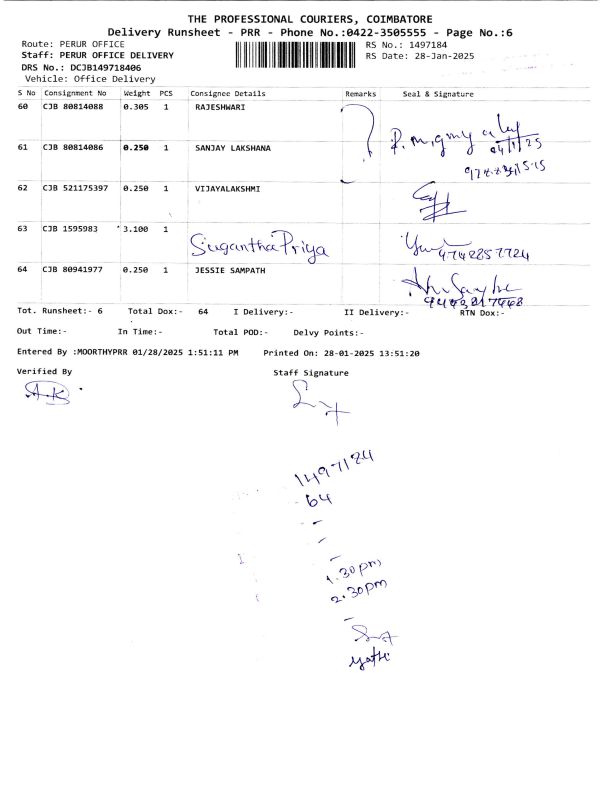 THE PROFESSIONAL COURIERS, COIMBATORE
Delivery Runsheet - PRR - Phone No.:0422-3505555 - Page No.:6
Route: PERUR OFFICE RS No.: 1497184
Staff: PERUR OFFICE DELIVERY RS Date: 28-Jan-2025
DRS No.: DCJB149718406
Vehicle: Office Delivery
S No Consignment No Weight PCS Consignee Details Remarks Seal & Signature
60 CJB 80814088 0.305 1 RAJESHWARI
61 CJB 80814086 0.250 1 SANJAY LAKSHANA
62 CJB 521175397 0.250 1 VIJAYALAKSHMI
63 CJB 1595983 3.100 1 SuganthaPriya
64 CJB 80941977 0.250 1 JESSIE SAMPATH
Tot. Runsheet:- 6 Total Dox:- 64 I Delivery:- II Delivery:- RTN Dox:-
Out Time:- In Time:- Total POD:- Delvy Points:-
Entered By :MOORTHYPRR 01/28/2025 1:51:11 PM Printed On: 28-01-2025 13:51:20
Verified By Staff Signature
A.K
1497184
64
1.30pm
2.30pm